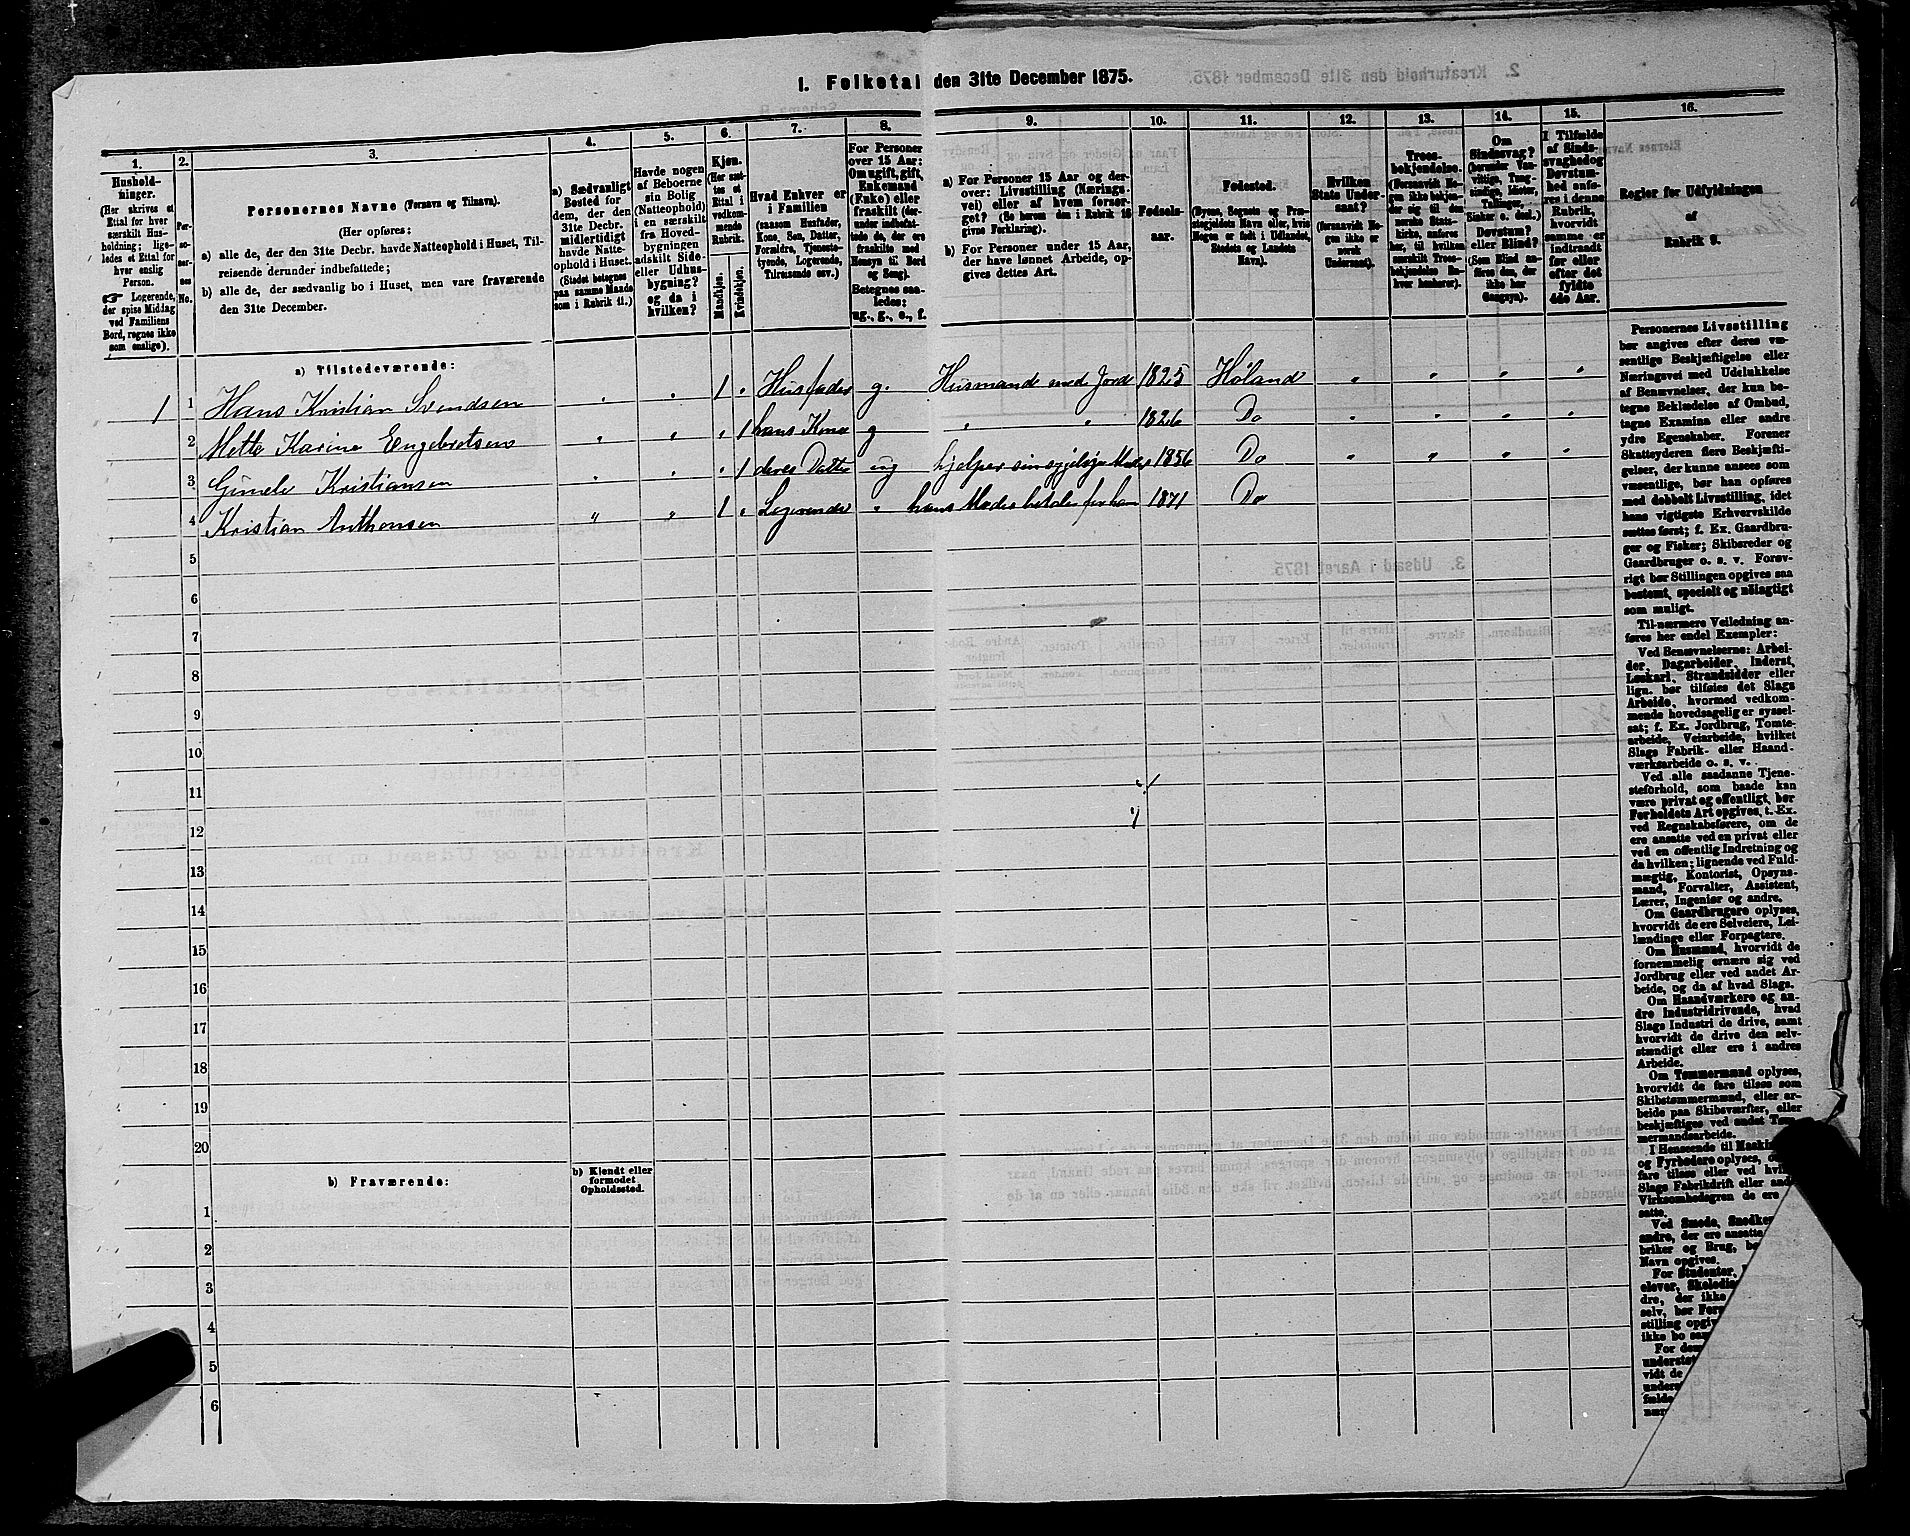 1. Folketal den 31te December 1875.
1.
Hushold-
ninger.
(Her skrives et
Ettal for hver
særskilt Hus-
holdning; lige-
ledes et Ettal for
hver enslig
Person.
☞ Logerende,
der spise Middag
ved Familiens
Bord, regnes ikke
som enslige).
2.
Per-
so-
ner-
nes
No.
3.
Personernes Navne (Fornavn og Tilnavn).
(Her opføres:
a) alle de, der den 31te Decbr. havde Natteophold i Huset, Til-
reisende derunder indbefattede;
b) alle de, der sædvanlig bo i Huset, men vare fraværende
den 31te December.
4.
a) Sædvanligt
Bosted for
dem, der den
31te Decbr.
midlertidigt
havde Natte-
ophold i Huset.
(Stedet betegnes
paa samme Maade
som i Rubrik 11.)
5.
Havde nogen
af Beboerne
sin Bolig
(Natteophold)
i en særskilt
fra Hoved-
bygningen
adskilt Side-
eller Udhus-
bygning?
og da i
hvilken?
6.
Kjøn.
(Her sæt-
tes et
Ettal i
vedkom-
mende
Rubrik.
Mandkjøn.
Kvindekjøn.
7.
Hvad Enhver er
i Familien
(saasom Husfader,
Kone, Søn, Datter,
Forældre, Tjeneste-
tyende, Logerende,
Tilreisende osv.)
8.
For Personer
over 15 Aar:
Om ugift, gift,
Enkemand
(Enke) eller
fraskilt (der-
under indbefat-
tede de, der ere
fraskilte med
Hensyn til Bord
og Seng).
Betegnes saa-
ledes:
ug., g., e., f.
9.
a) For Personer 15 Aar og der-
over: Livsstilling (Nærings-
vei) eller af hvem forsør-
get? (Se herom den i Rubrik 16
givne Forklaring).
b) For Personer under 15 Aar,
der have lønnet Arbeide, op-
gives dettes Art.
10.
Fødsels-
aar.
11.
Fødested.
(Byens, Sognets og Præ-
stegjeldets Navn eller, hvis
Nogen er født i Udlandet,
Stedets og Landets
Navn).
12.
Hvilken
Stats Under-
saat?
(forsaavidt No-
gen ikke er
norsk
Undersaat).
13.
Troes-
bekjendelse.
(Forsaavidt No-
gen ikke bekjen-
der sig til den
norske Stats-
kirke, anføres
her, til hvilken
særskilt Troes-
bekjendelse En-
hver henhører).
14.
Om
Sindssvag?
(herunder Van-
vittige, Tung-
sindige, Idioter,
Tullinger,
Sinker o. desl.)
Døvstum?
eller Blind?
(Som Blind an-
føres den, der
ikke har
Gangsyn).
15.
I Tilfælde
af Sinds-
svaghed og
Døvstum-
hed anfø-
res i denne
Rubrik,
hvorvidt
samme er
indtraadt
før eller
efter det
fyldte
4de Aar.
16.
Regler for Udfyldningen
af
Rubrik 9.
a) Tilstedeværende:
1 1 Hans Kristian Svendsen „ „ 1 „ Husfader g. Husmand med Jord 1825 Høland „ „ „ „
2 Mette Karine Engebretsen „ „ „ 1 hans Kone g „ „ 1826 Do „ „ „ „
3 Kristiansen „ „ „ 1 deres Datter ug hjelper sin 1856 Do „ „ „ „
4 Kristian Anthonsen „ „ 1 „ Logerende „ hans Moder betaler for ham 1871 Do
5
6
7
8
9
10
11
12
13
14
15
16
17
18
19
20
b) Fraværende:
b) Kjendt eller
formodet
Opholdssted.
1
2
3
4
5
6
Personernes Livsstilling
bør angives efter deres væ-
sentlige Beskjæftigelse eller
Næringsvei med Udelukkelse
af Benævnelser, der kun be-
tegne Beklædelse af Ombud,
tagne Examina eller andre
ydre Egenskaber. Forener
Skatteyderen flere Beskjæfti-
gelser, der kunne ansees som
væsentlige, bør han opføres
med dobbelt Livsstilling, idet
hans vigtigste Erhvervskilde
sættes først; f. Ex. Gaardbru-
ger og Fisker; Skibsreder og
Gaardbruger o. s. v. Forøv-
rigt bør Stillingen opgives saa
bestemt, specielt og nøiagtigt
som muligt.
Til nærmere Veiledning an-
føres her endel Exempler:
Ved Benævnelserne: Arbei-
der, Dagarbeider, Inderst,
Løskarl, Strandsidder eller
lign. bør tilføies det Slags
Arbeide, hvormed vedkom-
mende hovedsagelig er syssel-
sat; f. Ex. Jordbrug, Tomte-
arbeide, Veiarbeide, hvilket
Slags Fabrik- eller Haand-
værksarbeide o. s. v.
Ved alle saadanne Tjene-
steforhold, som baade kan
være privat og offentligt, bør
Forholdets Art opgives, t. Ex.
ved Regnskabsførere, om de
ere ansatte ved en privat eller
ved en offentlig Indretning og
da hvilken; lignende ved Fuld-
mægtig, Kontorist, Opsyns-
mand, Forvalter, Assistent,
Lærer, Ingeniør og andre.
Om Gaardbrugere oplyses,
hvorvidt de ere Selveiere, Lei-
lændinge eller Forpagtere.
Om Husmænd, hvorvidt de
fornemmelig ernære sig ved
Jordbrug eller ved andet Ar-
beide, og da af hvad Slags.
Om Haandværkere og an-
dre Industridrivende, hvad
Slags Industri de drive, samt
hvorvidt de drive den selv-
stændigt eller ere i andres
Arbeide.
Om Tømmermænd oplyses,
hvorvidt de fare tilsøs som
Skibstømmermænd, eller ar-
beide paa Skibsværfter, eller
beskjæftiges ved andet Tøm-
mermandsarbeide.
I Henseende til
og Fyrbødere oplyses,
fare tilsøs eller ved
Slags Fabrikdrift eller
Virksomhedsgren de ere
satte.
Ved Smede,
andre, der ere ansatte
briker og Brug,
Navn opgives.
For Studenter,
elever,
dre, der ikke
selv, bør
stilling
ikke bo
For
vidt de